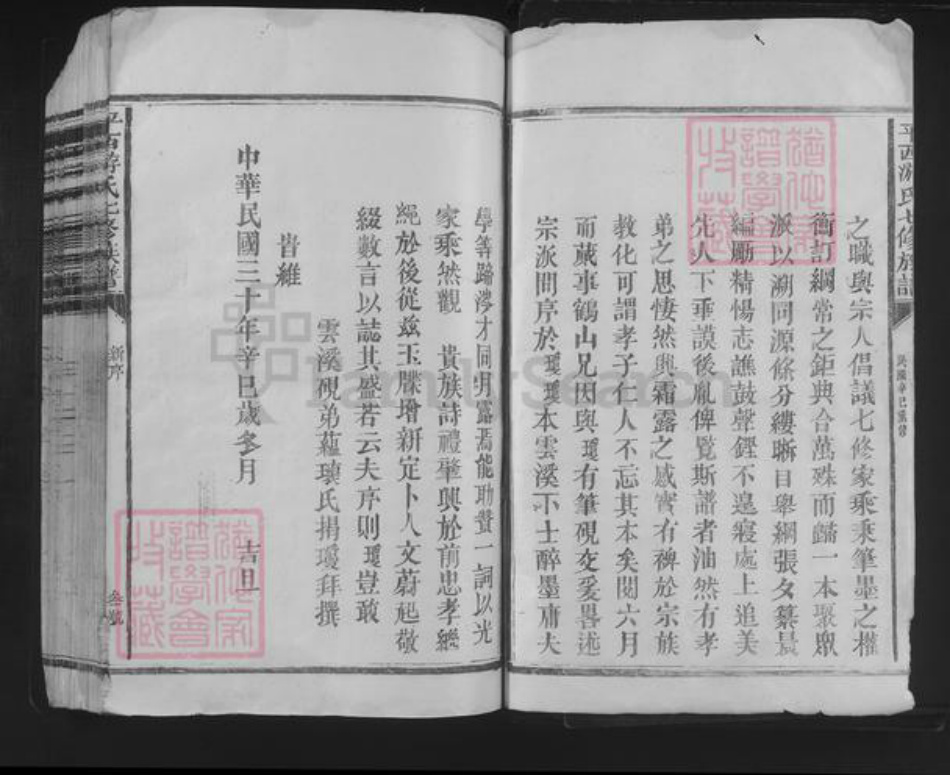 平西游氏七修族譜
民國辛巳歲修
之職與宗人倡議七修家乘秉筆墨之權
衡訂綱常之鉅典合萬殊而歸一本聚眾
派以溯同源條分縷晰目舉綱張夕纂晨
編勵精惕志譙鼓聲鏗不遑寢處上追美
先人下垂謨後胤俾覽斯譜者油然有孝
弟之思悽然興霜露之感實有裨於宗族
教化可謂孝子仁人不忘其本矣閱六月
而蕆事鶴山兄因與瓊有筆硯交爰畧述
宗派問序於瓊瓊本雲溪下士醉墨庸夫
學等蹄涔才同明露焉能助贊一詞以光
家乘然觀 貴族詩禮肇興於前忠孝繼
繩於後從茲玉牒增新定卜人文蔚起敬
綴數言以誌其盛若云夫序則瓊豈敢
雲溪硯弟蘊瓌氏揭瓊拜撰
旹維
中華民國三十年辛巳歲冬月 吉旦
平西游氏七修族譜
新序
叁號
FamilySearch